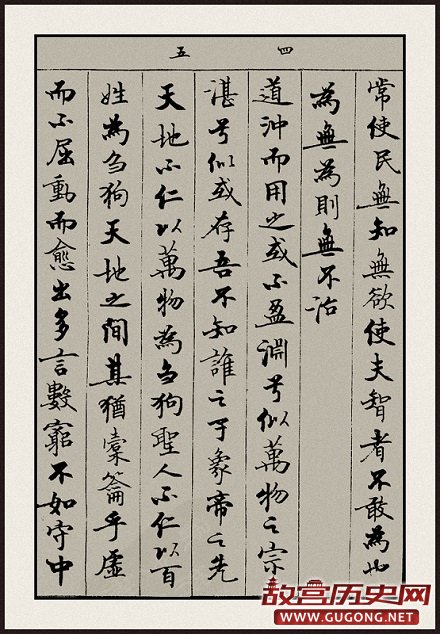 四 五
常使民無知無欲使夫智者不敢為也
為無為則無不治
道沖而用之或不盈淵兮似萬物之宗
湛兮似或存吾不知誰之子象帝之先
天地不仁以萬物為刍狗聖人不仁以百
姓為刍狗天地之間其猶橐籥乎虛
而不屈動而愈出多言數窮不如守中
故宫历史网
WWW.GUGONG.NET